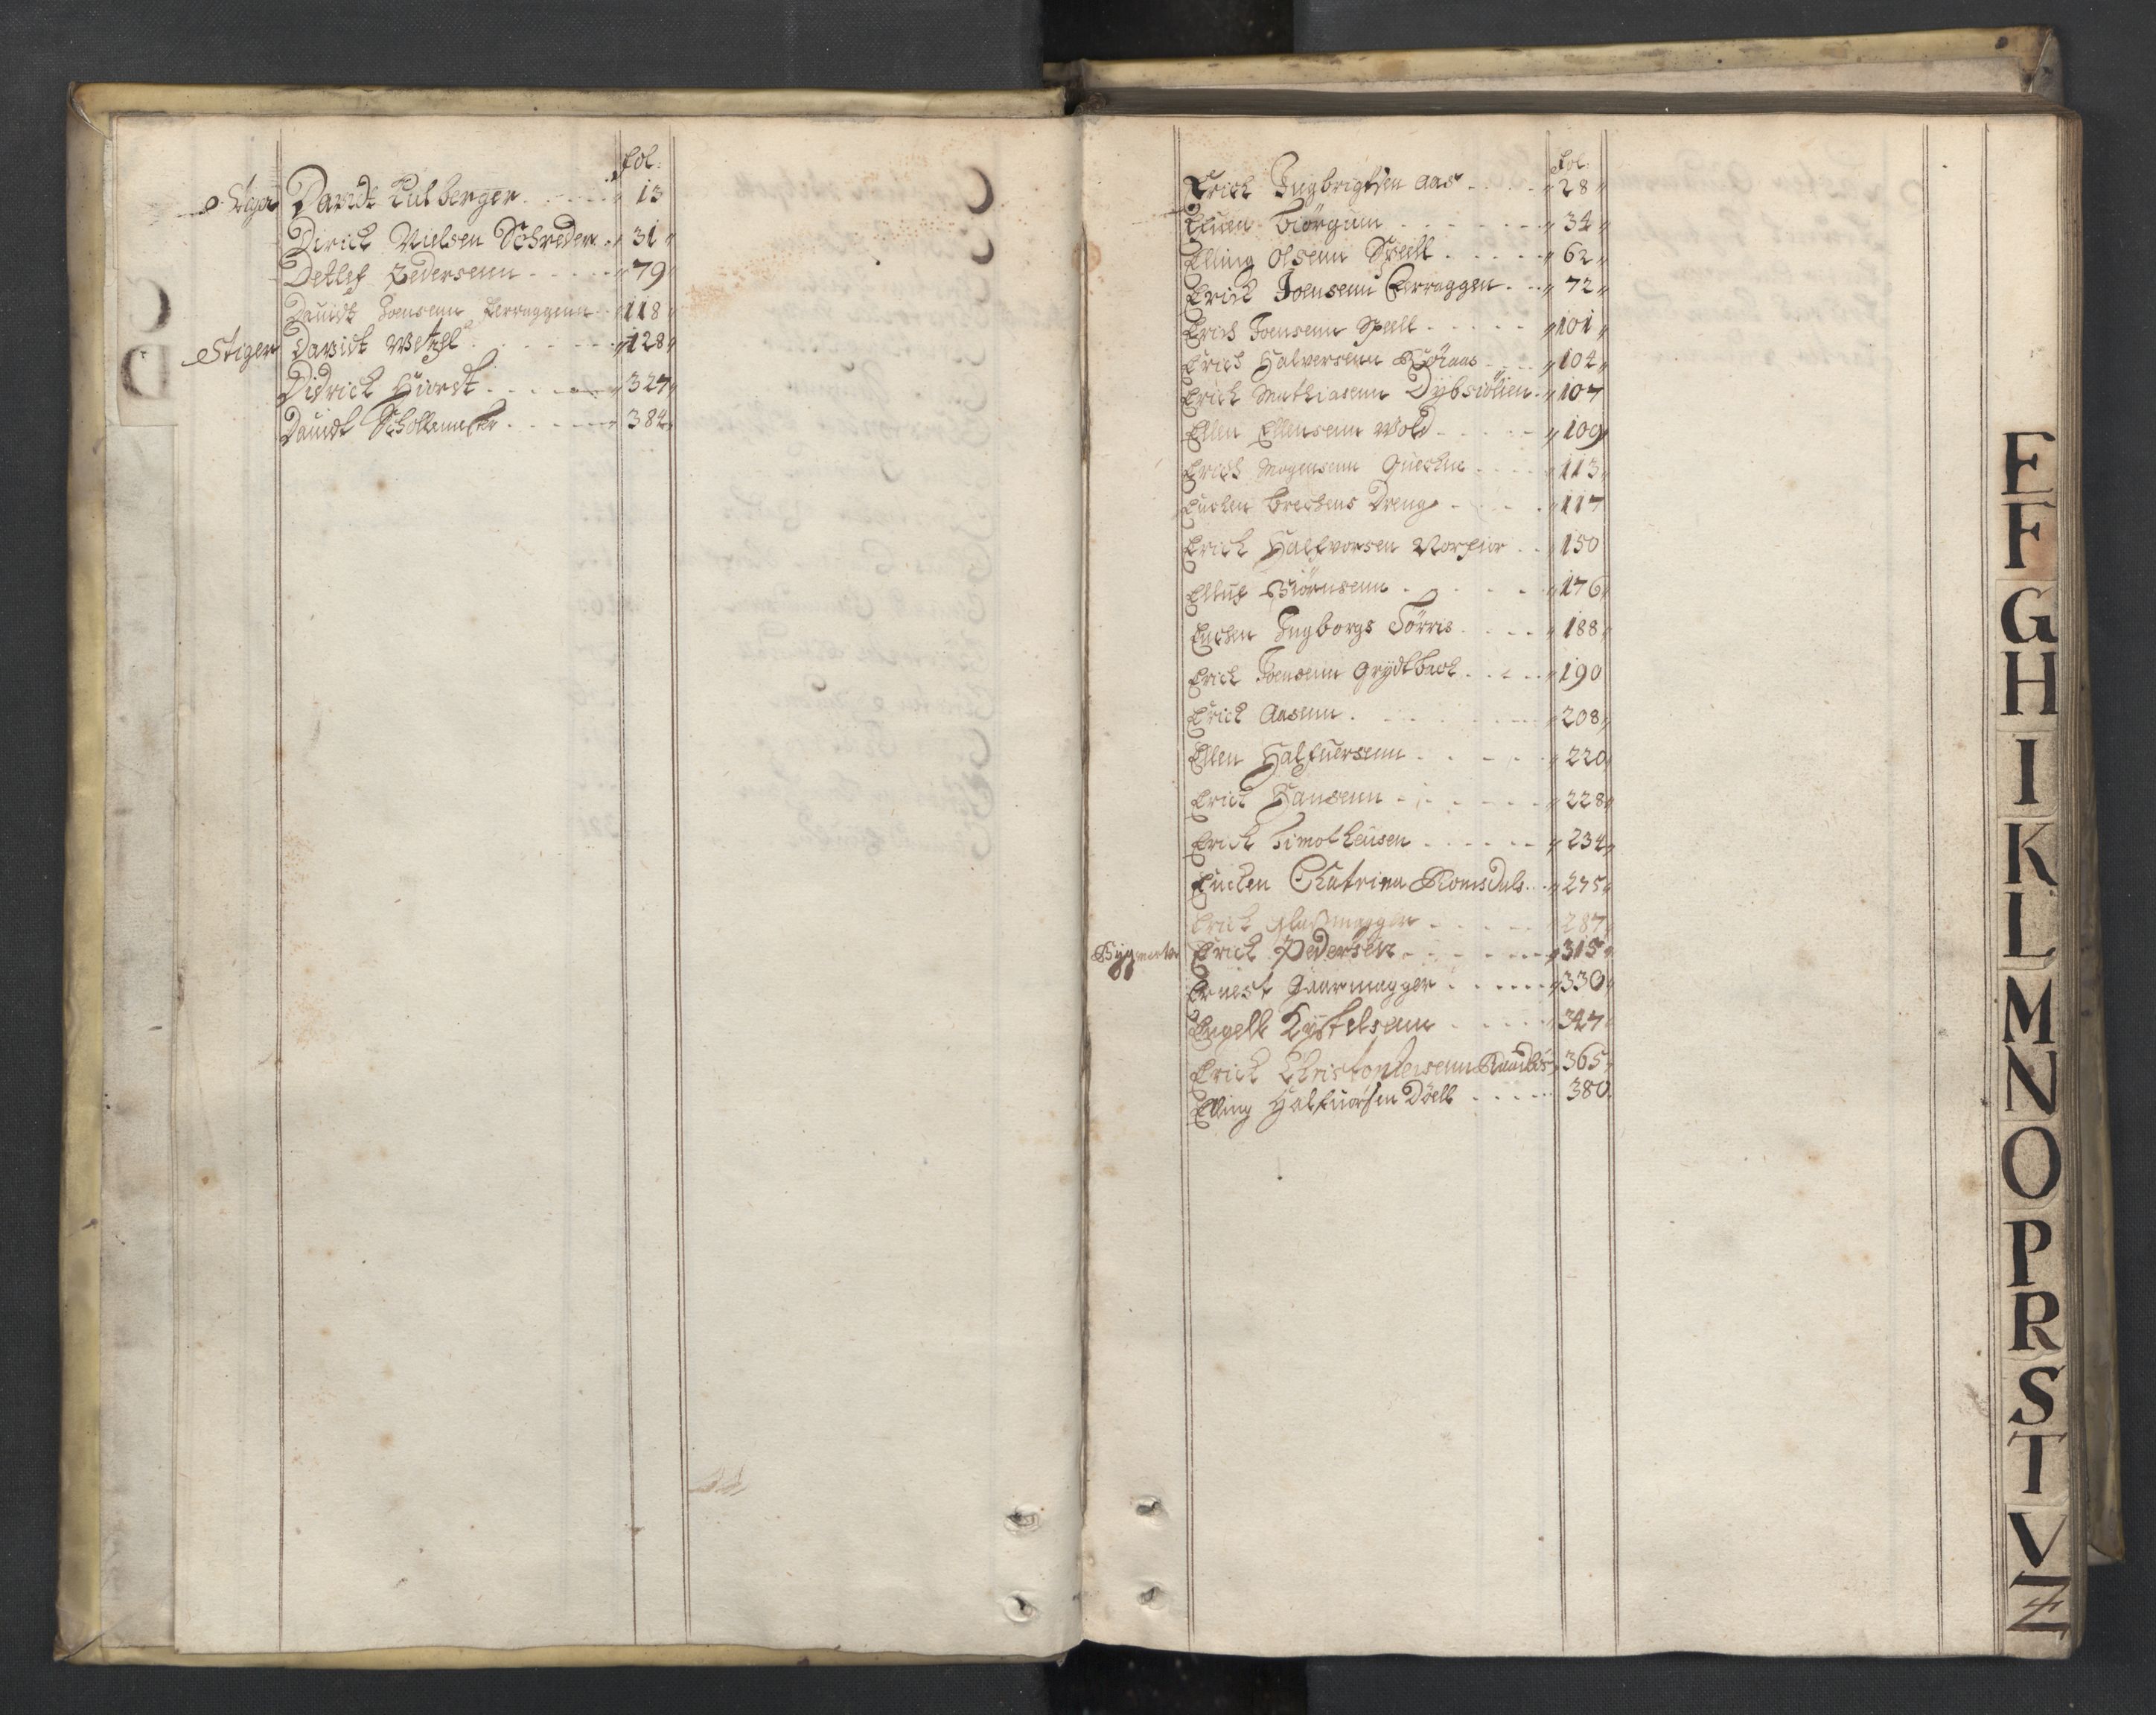 Fol:
Stiger Davidt Kulberger 13
Dirick Nielsen Schreder 31
Detlef Pedersenn 79
Davidt Joensenn Ferraggenn 118
Stiger Davidt Wetzel 128
Didrich Hiordt 327
Davidt Schollemester 384
C
D
Fol:
Erich Ingbrigtsen Aas 28
Eluen Biörgum 34
Elling Olsenn Spell 62
Erich Joensenn Ferraggen 72
Erich Joensenn Spell 101
Erich Halversenn Röraas 104
Erich Mathiasenn Dybsiölien 107
Ellen Ellensenn Wold 109
Erich Mogensenn 113
Encken Breckens Dreng 117
Erich Halfvorsen Norfior 150
Elluf Biörnsenn 176
Encken Ingborgs Törris 188
Erich Joensenn Grydtback 190
Erick Aasenn 208
Ellen Halfuersenn 220
Erich Hansenn 228
Erich Timotheusen 234
Encken Chatrina Romsdals 275
Erich Glasmagger 287
Bygmester Erich Pedersen 315
Ernest Gaarmagger 330
Engell Kystelsenn 347
Erich Christophersenn 365
Elling Halfuorsen Döell 380
E
F
G
H
I
K
L
M
N
O
P
R
S
T
V
Z